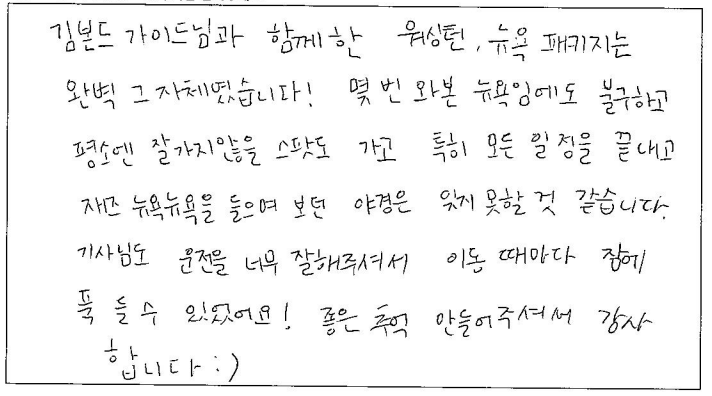 김본드 가이드님과 함께한 워싱턴, 뉴욕 패키지는
완벽 그 자체였습니다! 몇 번 와본 뉴욕임에도 불구하고
평소엔 잘가지않을 스팟도 가고 특히 모든 일정을 끝내고
재즈 뉴욕뉴욕을 들으며 보던 야경은 잊지 못할 것 같습니다.
기사님도 운전을 너무 잘해주셔서 이동 때마다 잠에
푹 들 수 있었어요! 좋은 추억 만들어주셔서 감사
합니다 :)